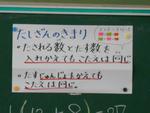 たしざんのきまり
・たされる数とたす数を
入れかえてもこたえは同じ
・たすじゅんじょをかえても
こたえは同じ。